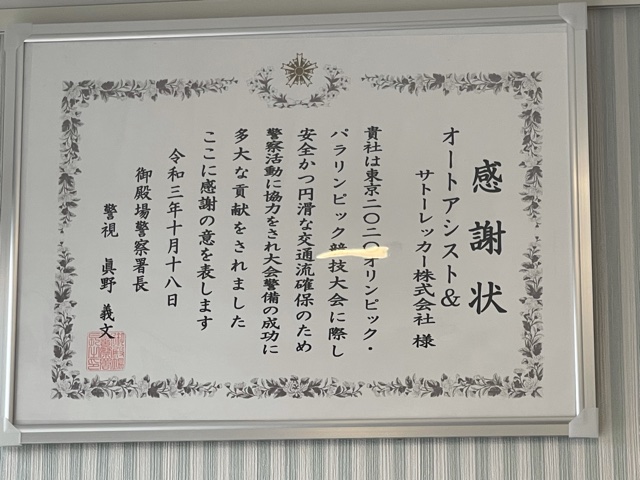 感謝状
オートアシスト&
サトーレッカー株式会社 様
貴社は東京二〇二〇オリンピック・
パラリンピック競技大会に際し
安全かつ円滑な交通流確保のため
警察活動に協力をされ大会警備の成功に
多大な貢献をされました
ここに感謝の意を表します
令和三年十月十八日
御殿場警察署長
警視 眞野 義文